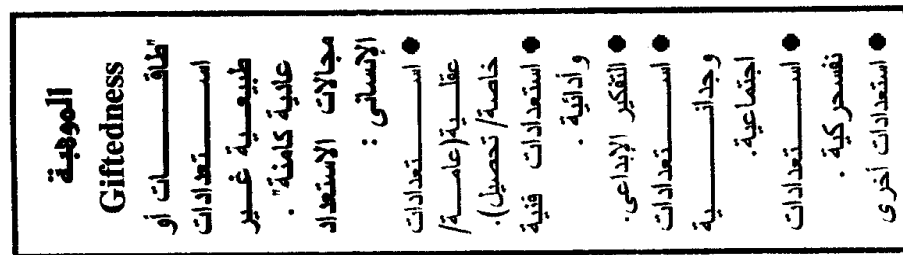 الموهبة
Giftedness
"طاقات أو
استعدادات
طبيعية غير
عادية كامنة".
مجالات الاستعداد
الإنساني :
● استعدادات
عقلية (عامة/
خاصة/ تحصيل).
● استعدادات فنية
وأدائية.
● التفكير الإبداعي.
● استعدادات
وجدانية
اجتماعية.
● استعدادات
نفسحركية.
● استعدادات أخرى